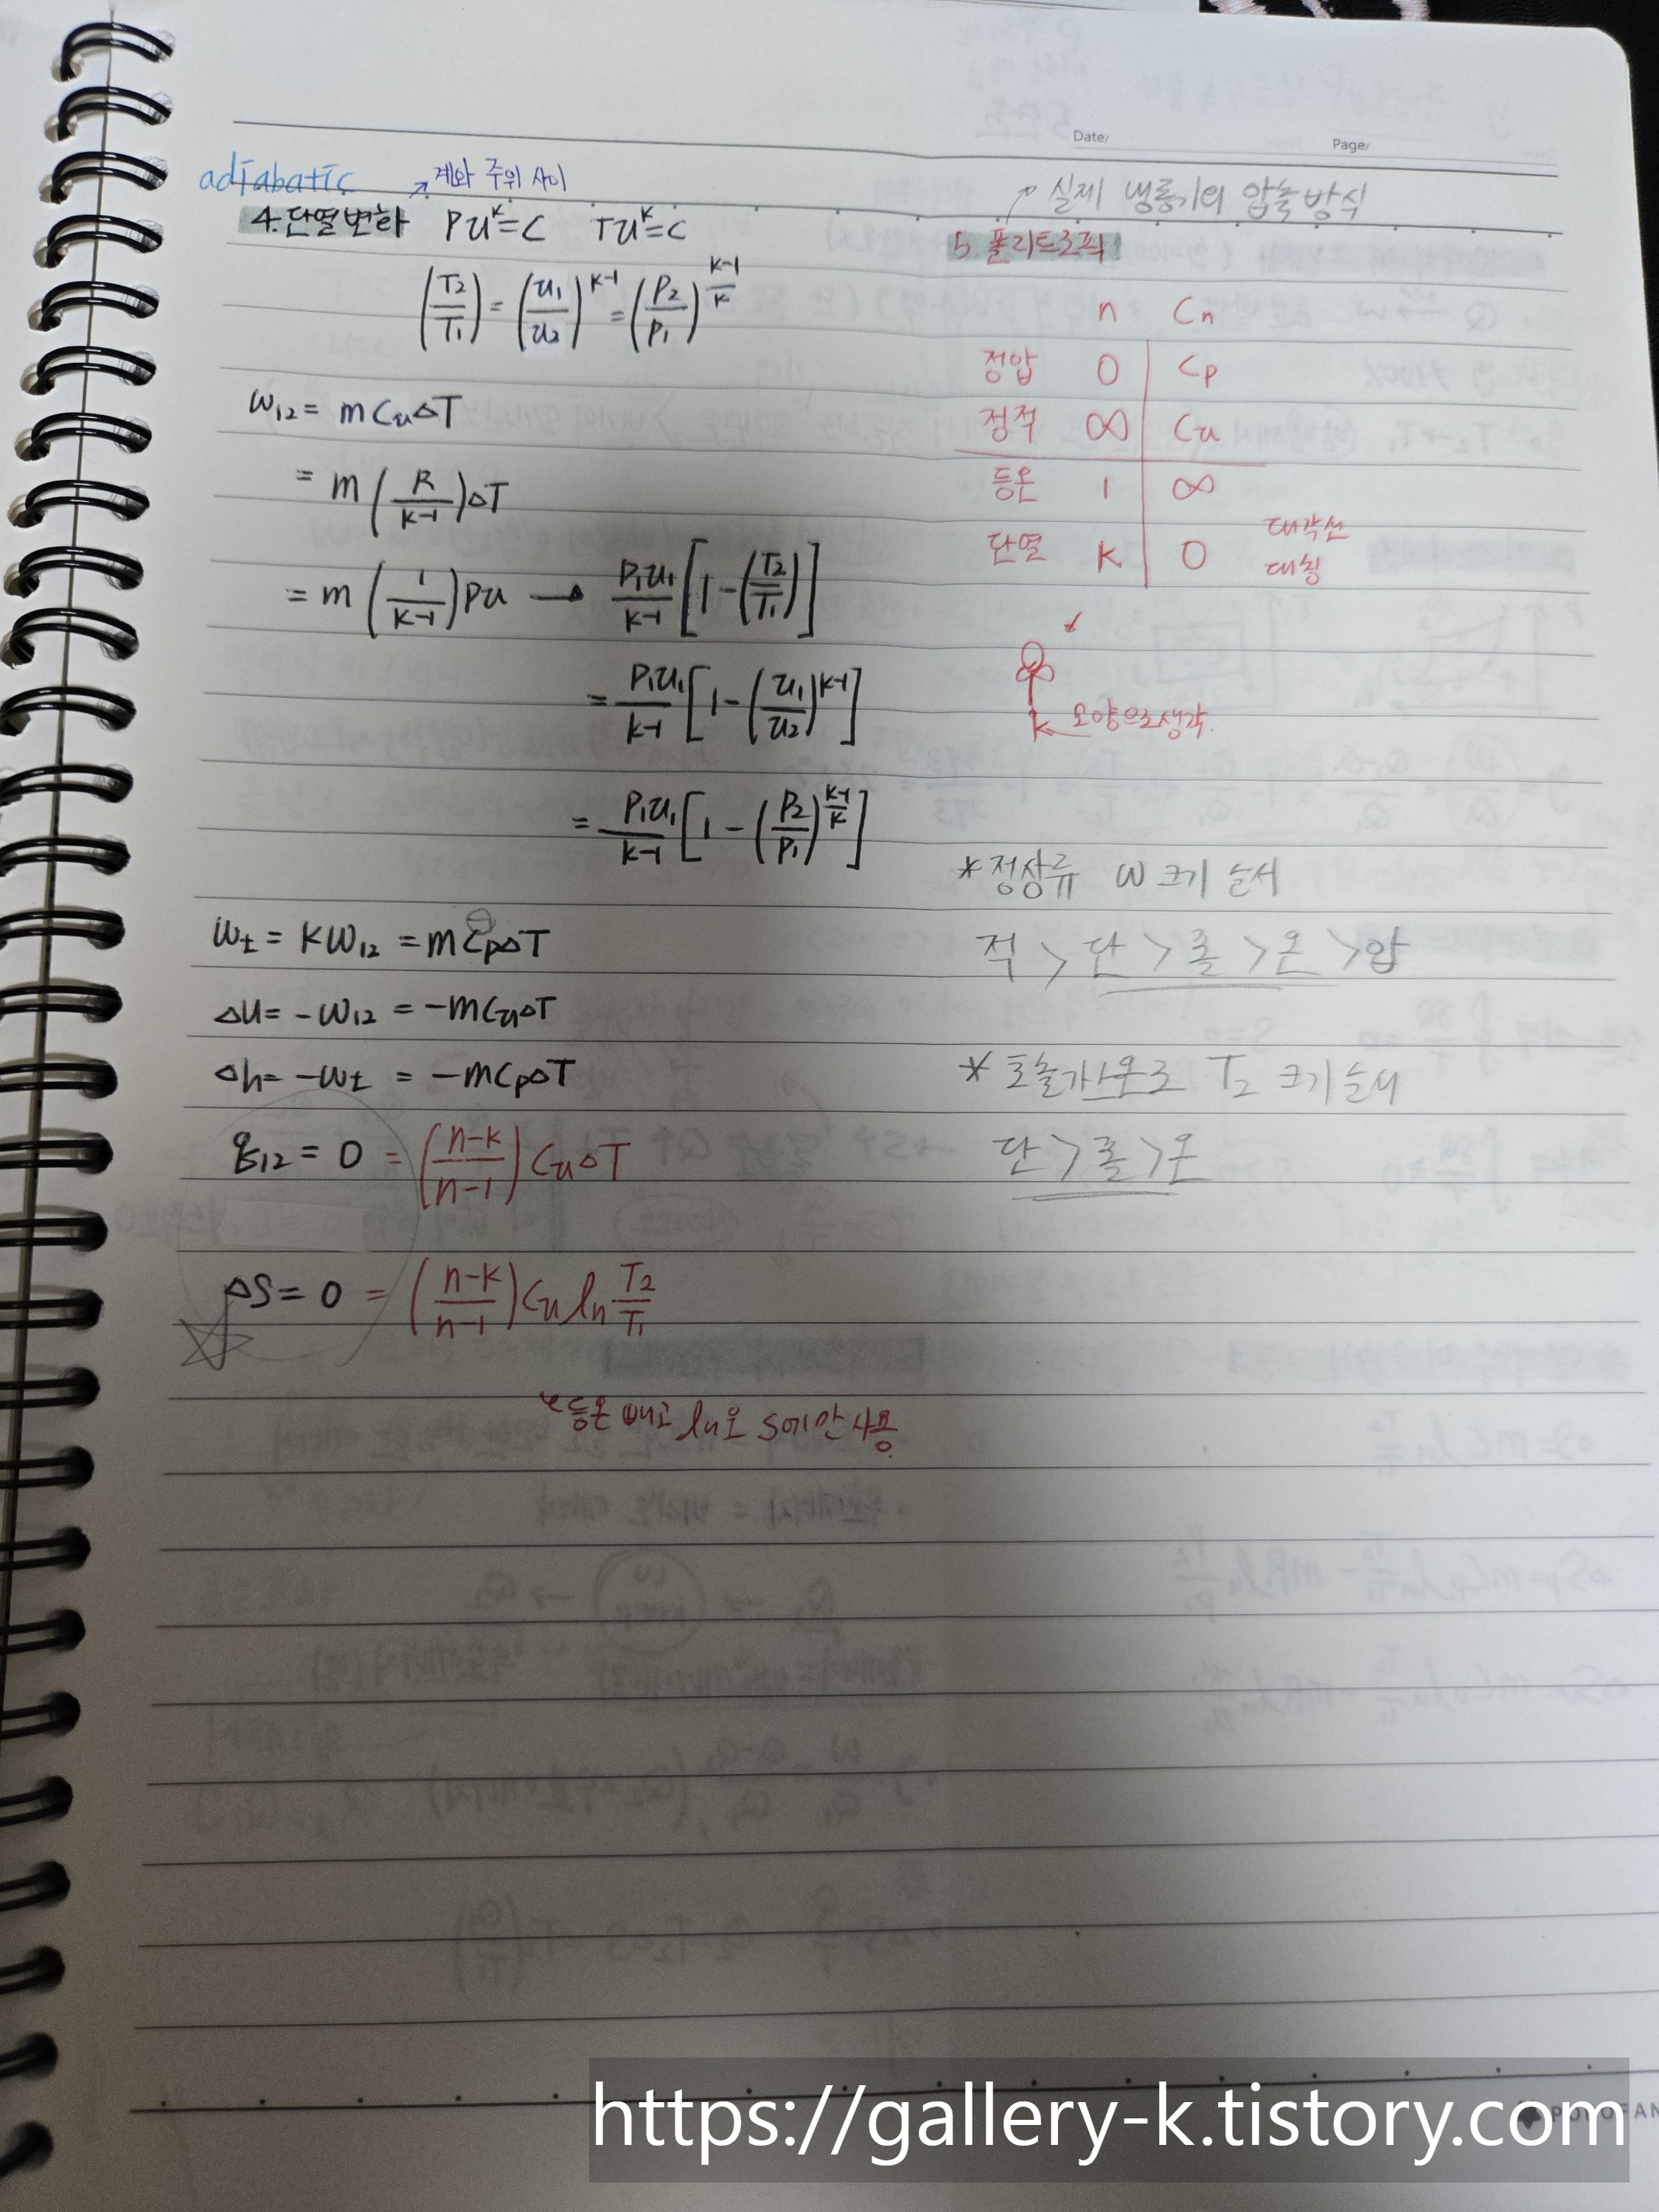 adiabatic
계와 주위 사이
4. 단열변화 Pv^k=C Tv^k=C
(T₂/T₁) = (v₁/v₂)^(k-1) = (P₂/P₁)^((k-1)/k)
w₁₂ = mCvΔT
= m(R/(k-1))ΔT
= m(1/(k-1))Pv → P₁v₁/(k-1) [1-(T₂/T₁)]
= P₁v₁/(k-1) [1-(v₁/v₂)^(k-1)]
= P₁v₁/(k-1) [1-(P₂/P₁)^((k-1)/k)]
wt = kw₁₂ = m⊖CpΔT
Δu = -w₁₂ = -mCvΔT
Δh = -wt = -mCpΔT
q₁₂ = 0 = ((n-k)/(n-1)) CvΔT
ΔS = 0 = ((n-k)/(n-1)) Cv ln T₂/T₁
등온 빼고 ln은 S에만 사용
Date/
Page/
실제 냉동기의 압축방식
5. 폴리트로픽
n Cn
정압 0 Cp
정적 ∞ Cv
등온 1 ∞
단열 k 0
대각선
대칭
k 모양으로 생각.
*정상류 w 크기 순서
적 > 단 > 폴 > 온 > 압
* 토출가스온도 T₂ 크기순서
단 > 폴 > 온
https://gallery-k.tistory.com